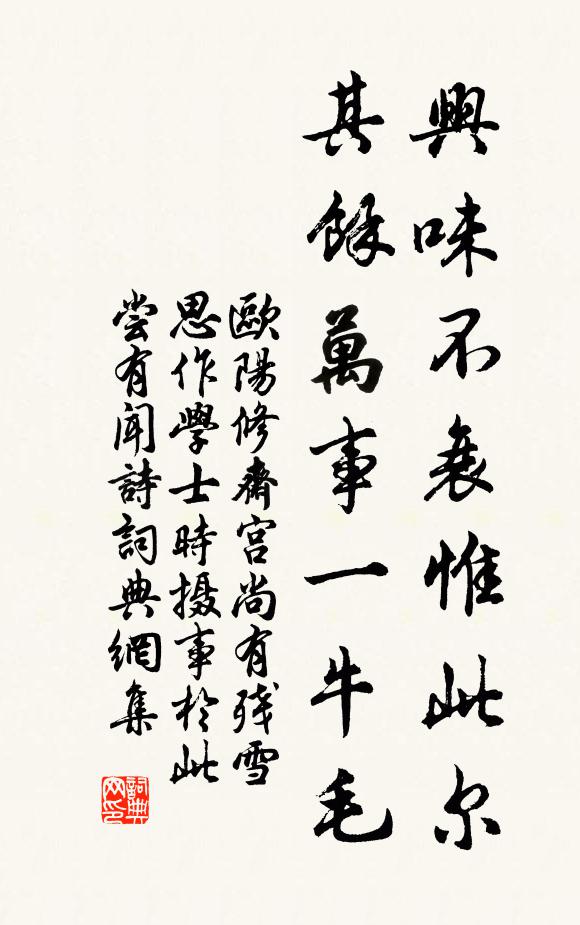 興味不衰惟此尔
其餘萬事一牛毛
歐陽修齋宮尚有殘雪
思作學士時摄事於此
嘗有聞詩詞典網集
詞典
网印